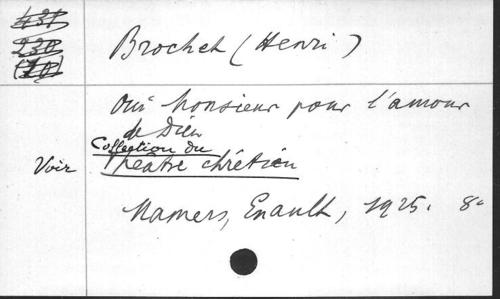 431
230
(20)
Brochet (Henri)
Oui Monsieur pour l'amour
de Dieu
Collection du
Voir Théâtre chrétien
Mamers, Enault, 1925. 8°